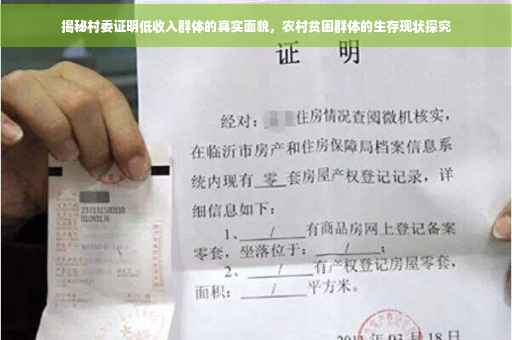 揭秘村委证明低收入群体的真实面貌，农村贫困群体的生存现状探究
证 明
经对：住房情况查阅微机核实，
在临沂市房产和住房保障局档案信息系
统内现有 零 套房屋产权登记记录，详
细信息如下：
1、 / 有商品房网上登记备案
零套，坐落位于： / ；
2、 / 有产权登记房屋零套，
面积： / 平方米。
03月18日